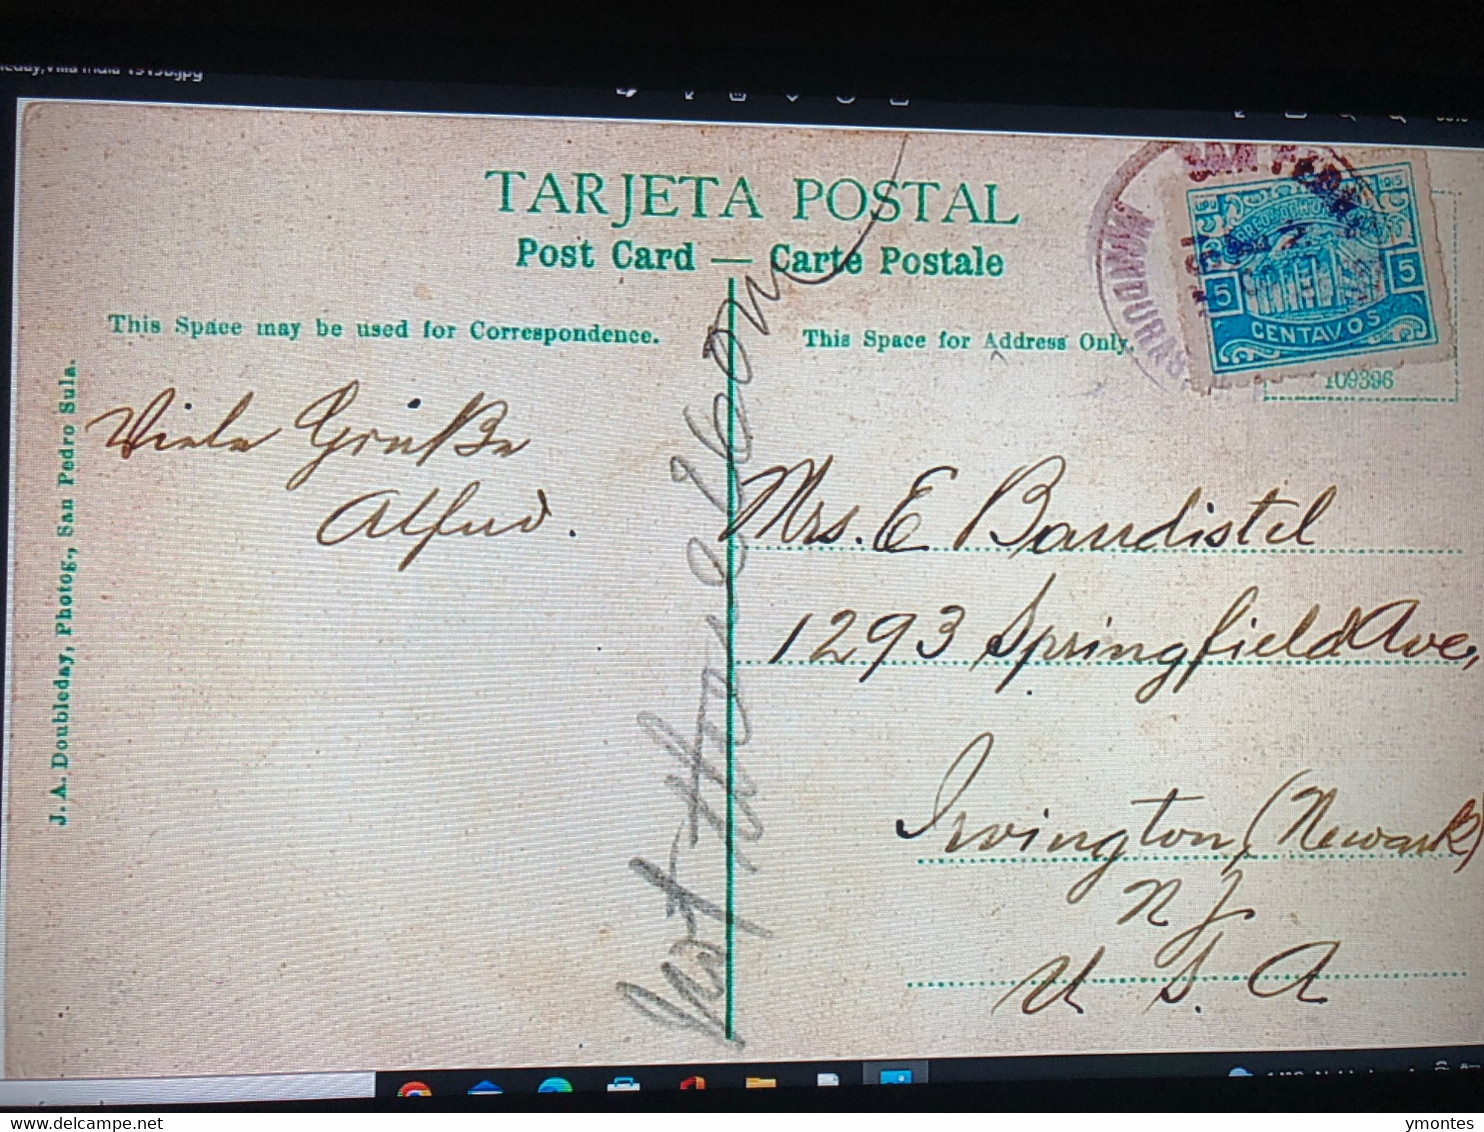 TARJETA POSTAL
Post Card — Carte Postale
This Space may be used for Correspondence.
This Space for Address Only.
Viele Grüße
Alfred.
Mrs. E Baudistel
1293 Springfield Ave,
Irvington, (Newark)
N J
U S. A
J. A. Doubleday, Photog., San Pedro Sula.
HONDURAS
SAN PEDRO
UPU
1915
CORREOS DE HONDURAS
5
5
CENTAVOS
109396
delcampe.net
ymontes